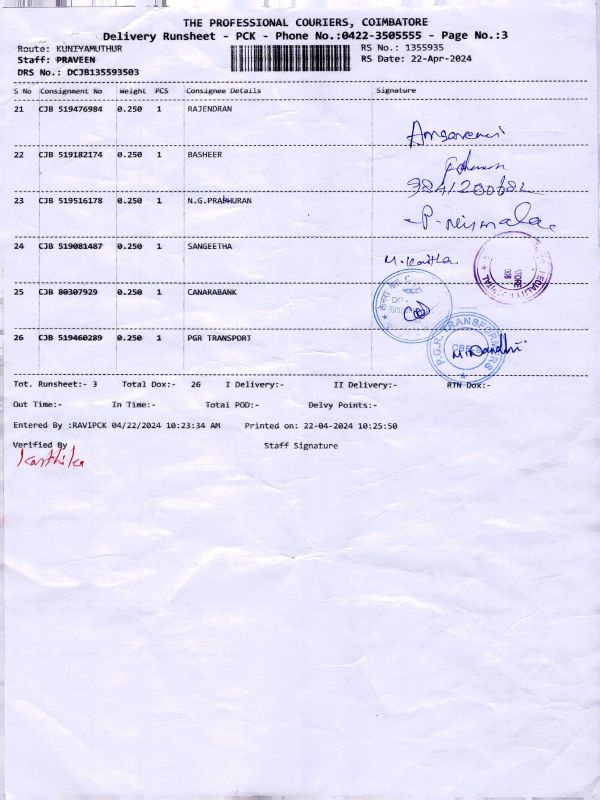 THE PROFESSIONAL COURIERS, COIMBATORE
Delivery Runsheet - PCK - Phone No.:0422-3505555 - Page No.:3
Route: KUNIYAMUTHUR RS No.: 1355935
Staff: PRAVEEN RS Date: 22-Apr-2024
DRS No.: DCJB135593503
S No Consignment No Weight PCS Consignee Details Signature
21 CJB 519476984 0.250 1 RAJENDRAN
22 CJB 519182174 0.250 1 BASHEER
23 CJB 519516178 0.250 1 N.G.PRABHURAN
P. Nirmala
24 CJB 519081487 0.250 1 SANGEETHA
M. Kavitha
25 CJB 80307929 0.250 1 CANARABANK
26 CJB 519460289 0.250 1 PGR TRANSPORT
P.G.R. TRANSFORMERS
Tot. Runsheet:- 3 Total Dox:- 26 I Delivery:- II Delivery:- RTN Dox:-
Out Time:- In Time:- Total POD:- Delvy Points:-
Entered By :RAVIPCK 04/22/2024 10:23:34 AM Printed on: 22-04-2024 10:25:50
Verified By Staff Signature
Karthika